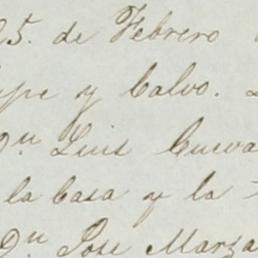 25. de Febrero
y Calvo.
Dn Luis Cueva
la Casa y la
Dn Jose Marza